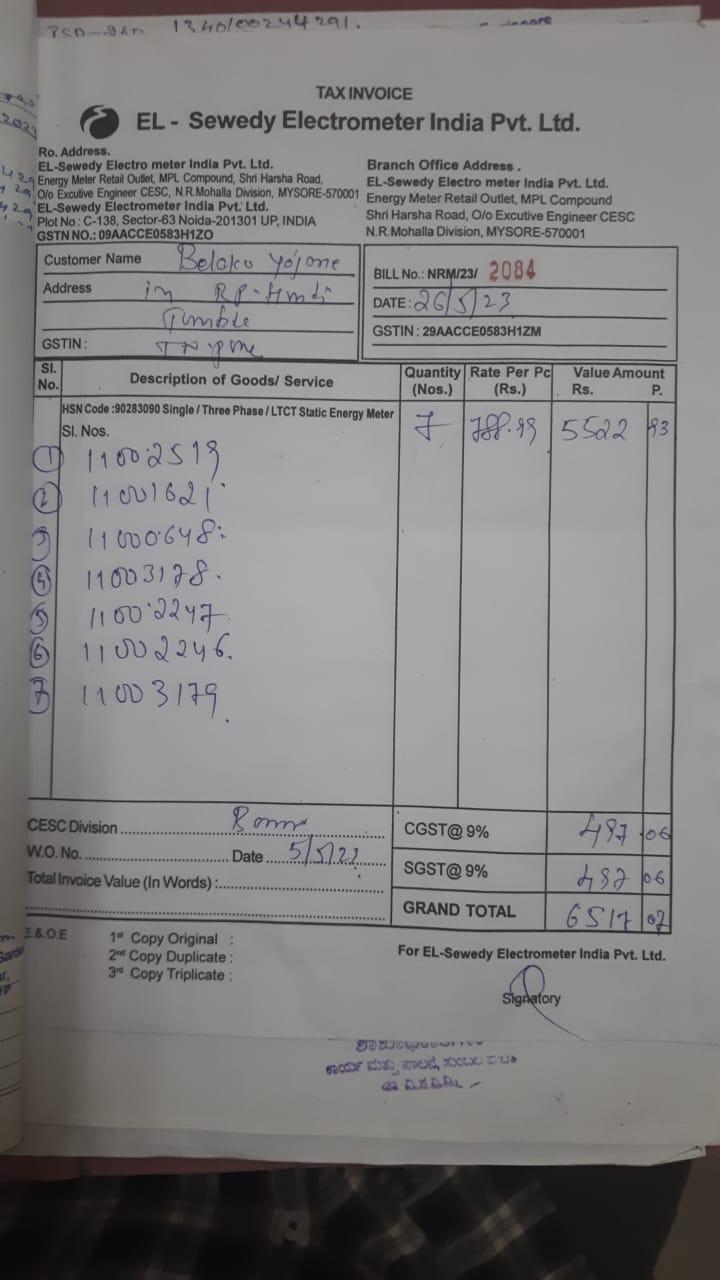 1340/00244291.
TAX INVOICE
EL - Sewedy Electrometer India Pvt. Ltd.
Ro. Address.
EL-Sewedy Electro meter India Pvt. Ltd.
Energy Meter Retail Outlet, MPL Compound, Shri Harsha Road,
O/o Excutive Engineer CESC, N.R.Mohalla Division, MYSORE-570001
EL-Sewedy Electrometer India Pvt. Ltd.
Plot No : C-138, Sector-63 Noida-201301 UP, INDIA
GSTN NO.: 09AACCE0583H1ZO
Branch Office Address .
EL-Sewedy Electro meter India Pvt. Ltd.
Energy Meter Retail Outlet, MPL Compound
Shri Harsha Road, O/o Excutive Engineer CESC
N.R.Mohalla Division, MYSORE-570001
Customer Name Belaku
Address in
GSTIN :
BILL No.: NRM/23/ 2084
DATE : 26/5/23
GSTIN : 29AACCE0583H1ZM
Sl. No. Description of Goods/ Service Quantity (Nos.) Rate Per Pc (Rs.) Value Amount Rs. P.
HSN Code :90283090 Single / Three Phase / LTCT Static Energy Meter 7 788.99 5522 93
Sl. Nos.
1 11002519
2 11001621
3 11000648
4 11003178.
5 11002247
6 11002246.
7 11003179
CESC Division
W.O. No. Date 5/5/23
Total Invoice Value (In Words) :
CGST@ 9% 497 06
SGST@ 9% 497 06
GRAND TOTAL 6517 07
E & O.E
1st Copy Original :
2nd Copy Duplicate :
3rd Copy Triplicate :
For EL-Sewedy Electrometer India Pvt. Ltd.
Signatory
ಕಾರ್ಯ ಮತ್ತು ಪಾಲನೆ,